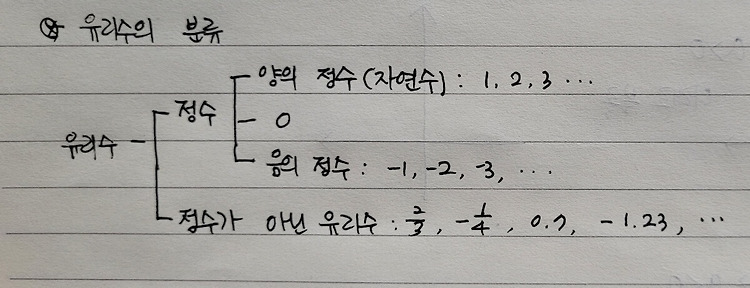 ⊛ 유리수의 분류
양의 정수(자연수) : 1, 2, 3 ···
정수
0
유리수
음의 정수 : -1, -2, -3, ···
정수가 아닌 유리수 : 2/3, -1/4, 0.7, -1.23, ···